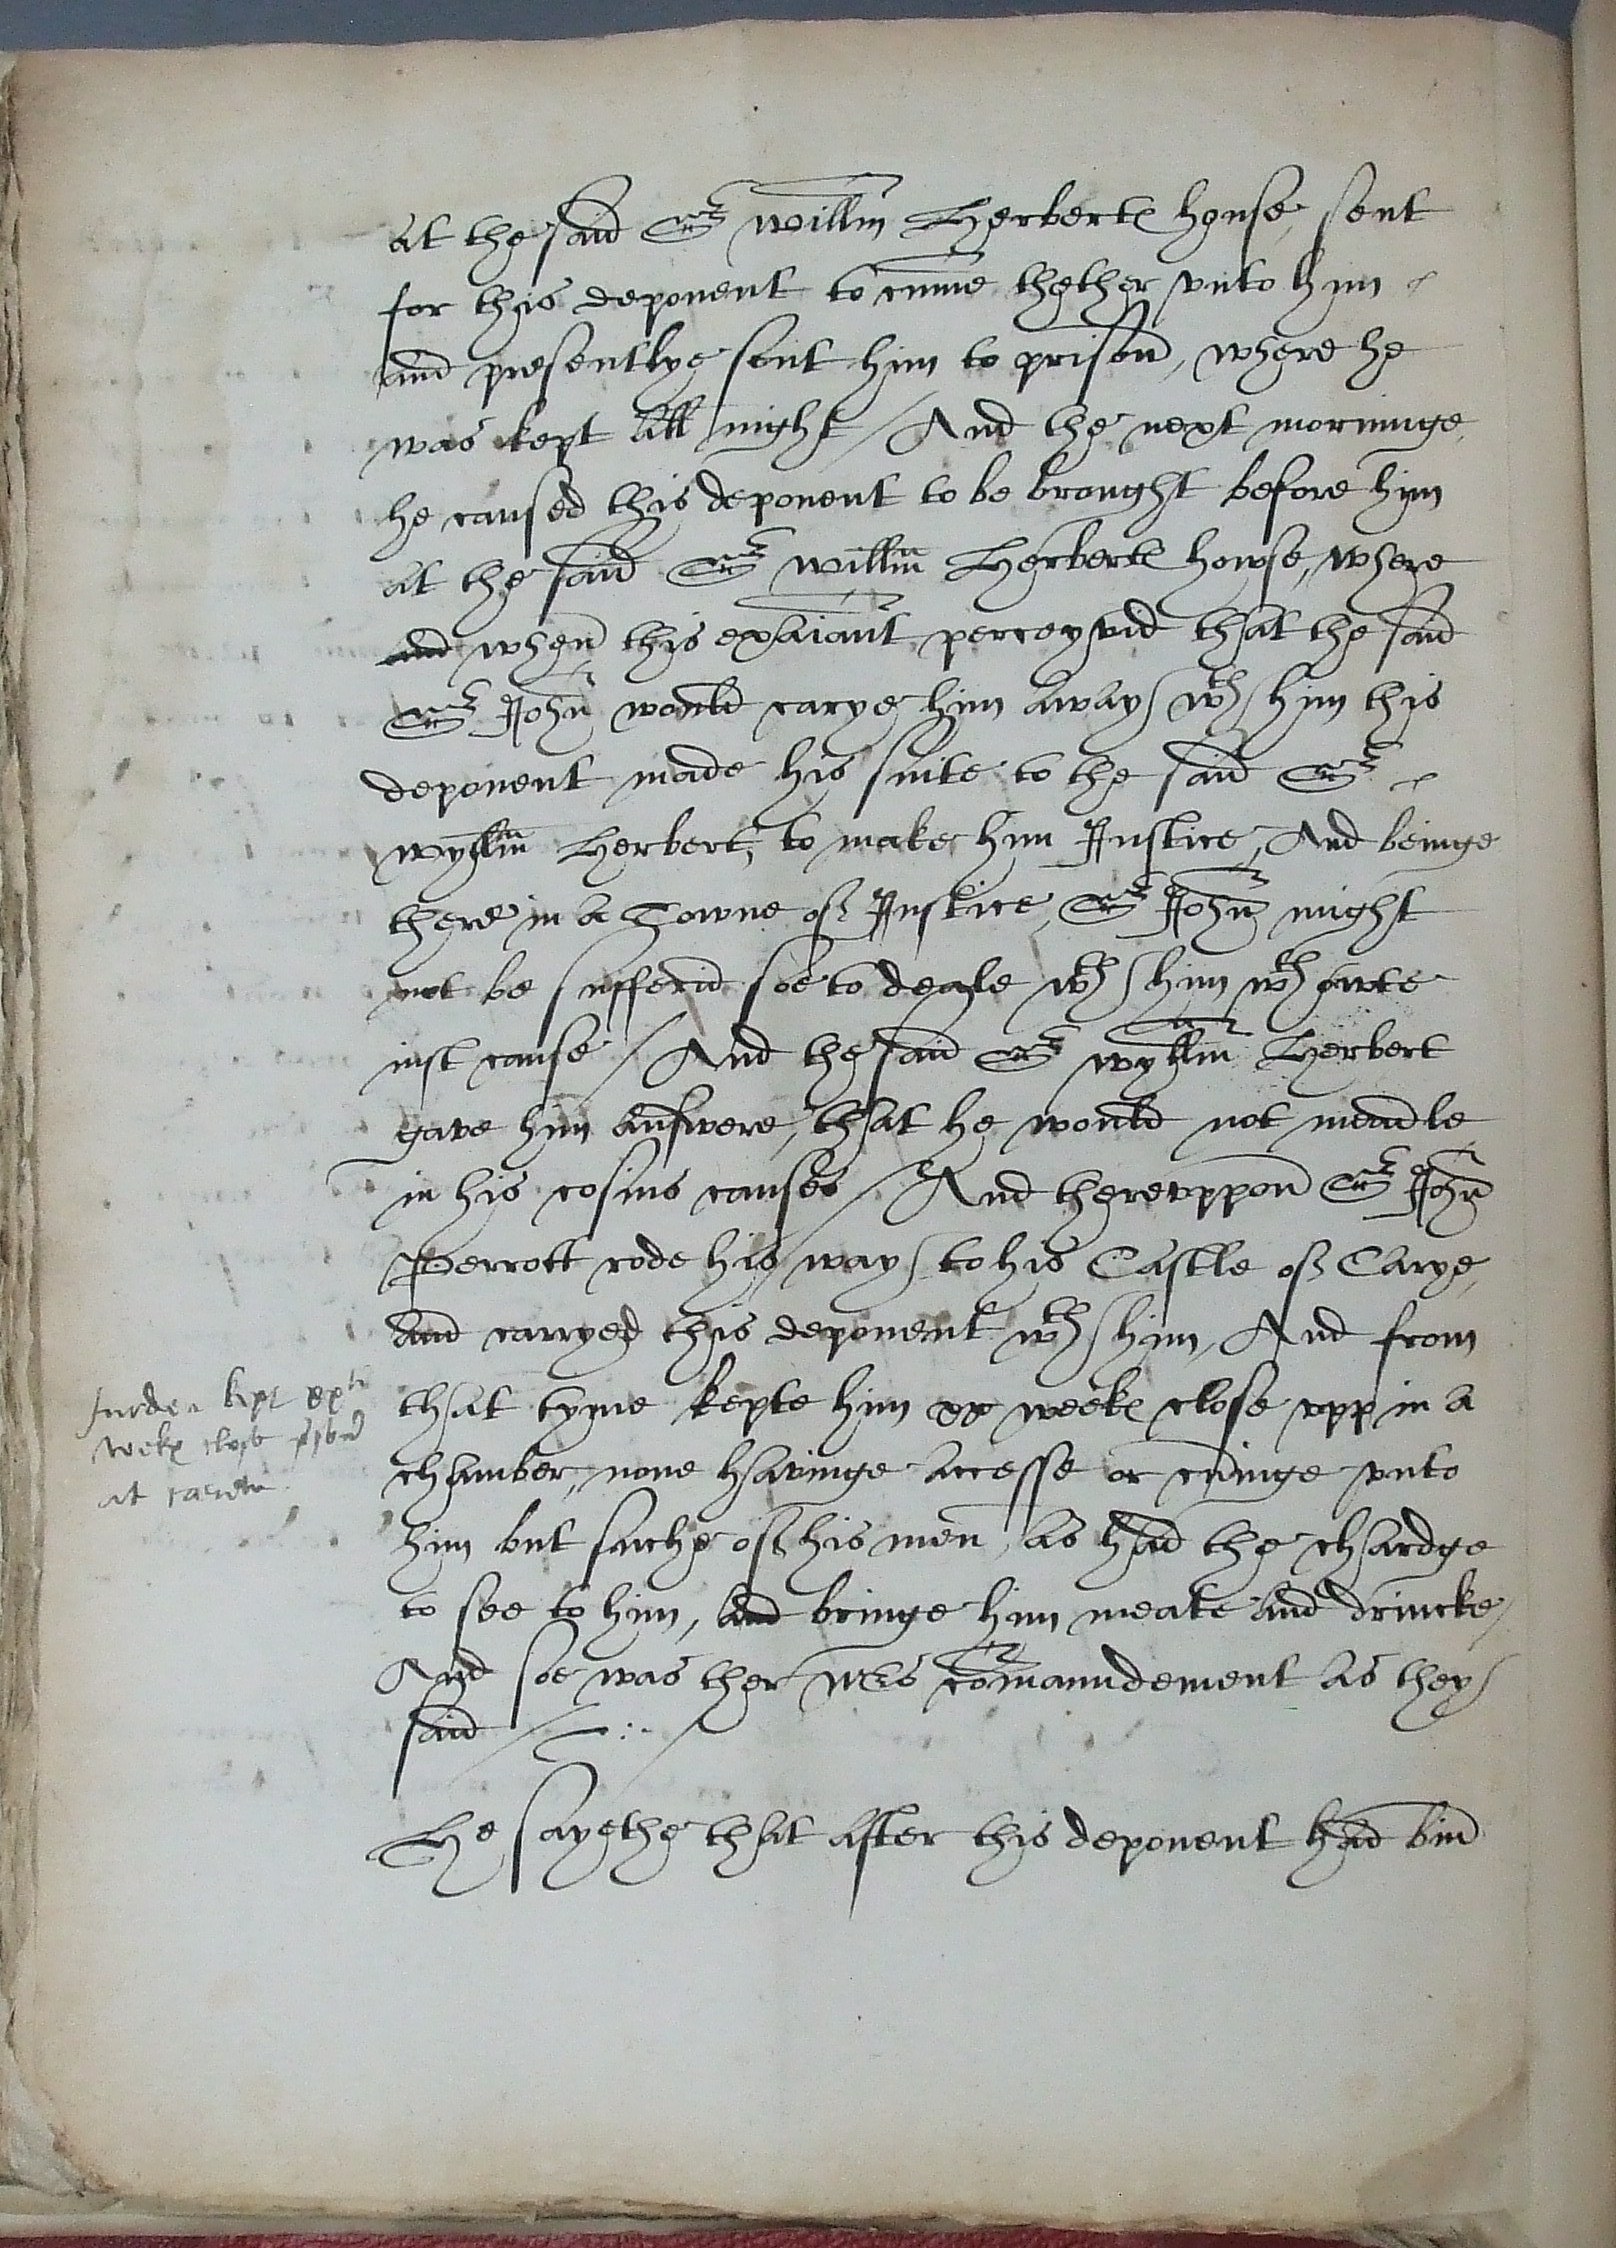 at the said Sr Willm Herbertes house, sent
for this deponent to cumme thether vnto him
and presentlye sent him to prison, where he
was kept all night / And the next morninge
he caused this deponent to be brought before him
at the said Sr Willm Herbertes howse, where
and when this exaiant perceyvid that the said
Sr John would carye him away wth him this
deponent made his suite to the said Sr
Wyllm Herbert, to make him Justice, And beinge
there in a Towne of Justice, Sr John might
not be sufferid soe to deale wth him wthowte
iust cause / And the said Sr Wyllm Herbert
gave him answere, that he would not meadle
in his cosins causes / And therevppon Sr John
Perrott rode his way to his Castle of Carye,
and carryed this deponent wth him, And from
that tyme kepte him xx weekes close vpp in a
chamber, none havinge accesse or cominge vnto
him but suche of his men, as had the chardge
to see to him, and bringe him meate and drincke,
And soe was ther Mrs comaundement as they
said /
He sayethe that after this deponent had bin
kept xxtie
wekes close
at carew